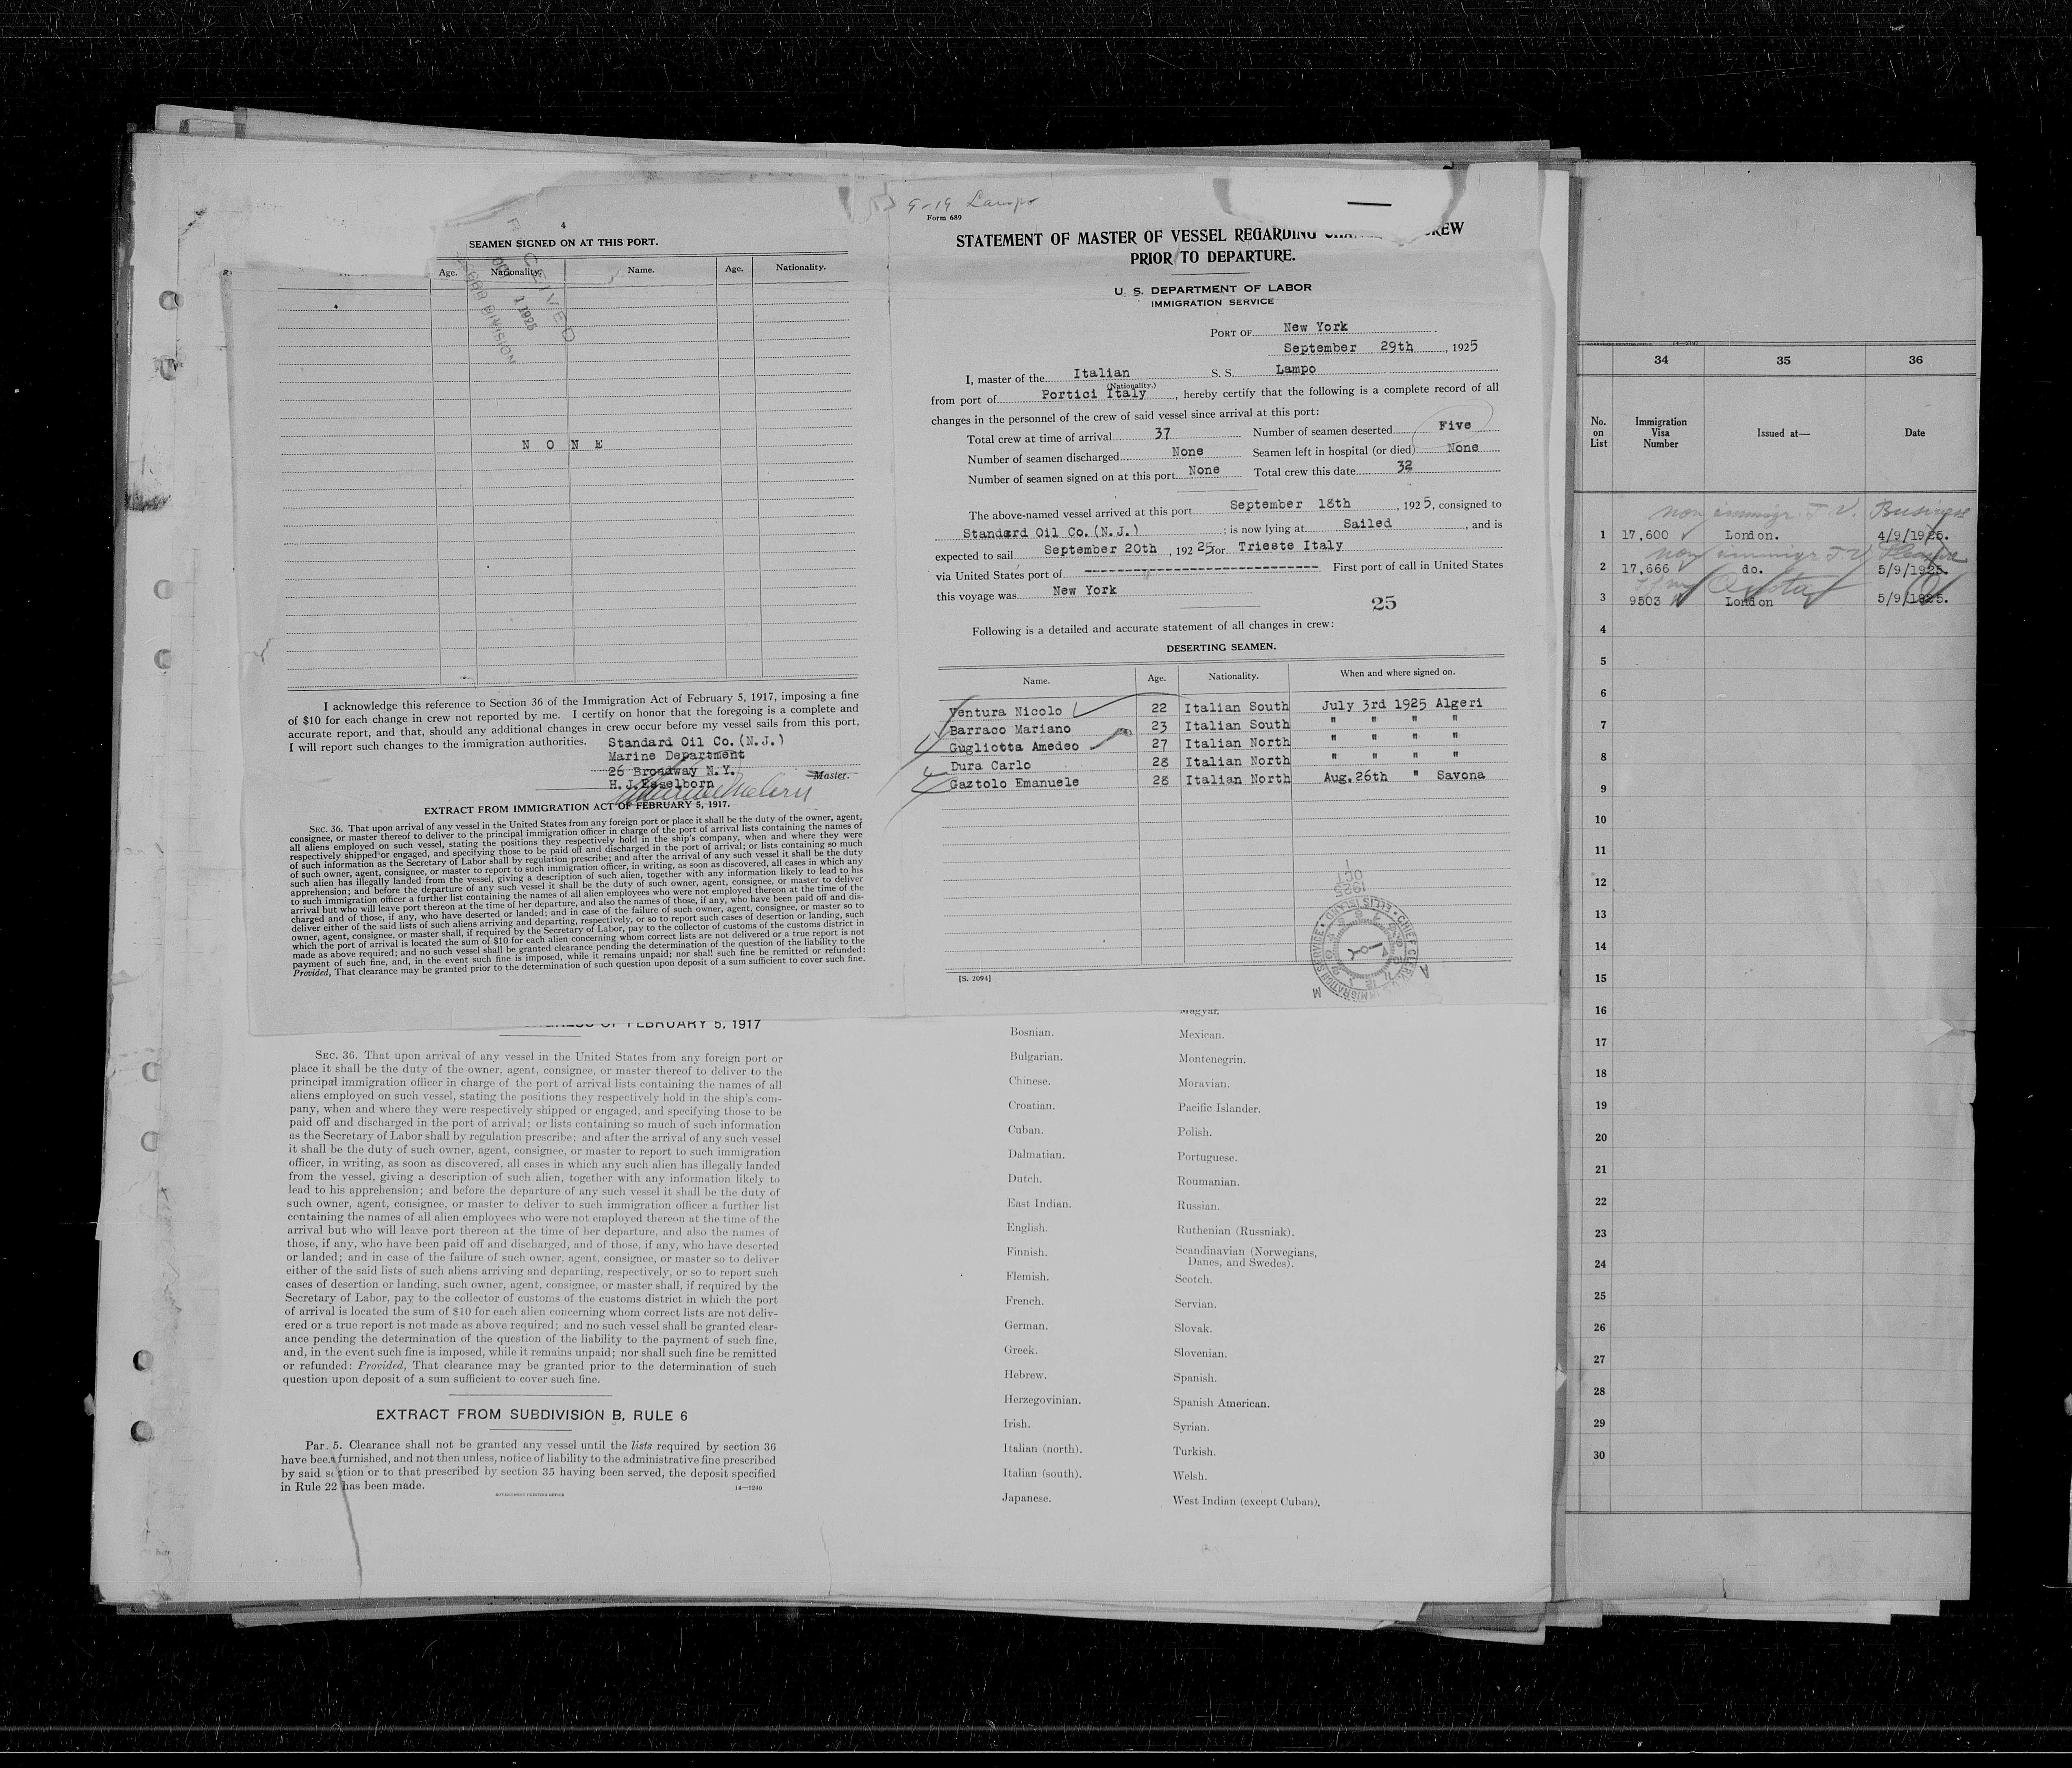 4
SEAMEN SIGNED ON AT THIS PORT.
Age. Nationality. Name. Age. Nationality.
RECEIVED
1 1925
DIVISION
N O N E
I acknowledge this reference to Section 36 of the Immigration Act of February 5, 1917, imposing a fine
of $10 for each change in crew not reported by me. I certify on honor that the foregoing is a complete and
accurate report, and that, should any additional changes in crew occur before my vessel sails from this port,
I will report such changes to the immigration authorities.
Standard Oil Co.(N.J.)
Marine Department
26 Broadway N.Y.
Master.
H.J.Esselborn
EXTRACT FROM IMMIGRATION ACT OF FEBRUARY 5, 1917.
SEC. 36. That upon arrival of any vessel in the United States from any foreign port or place it shall be the duty of the owner, agent,
consignee, or master thereof to deliver to the principal immigration officer in charge of the port of arrival lists containing the names of
all aliens employed on such vessel, stating the positions they respectively hold in the ship's company, when and where they were
respectively shipped or engaged, and specifying those to be paid off and discharged in the port of arrival; or lists containing so much
of such information as the Secretary of Labor shall by regulation prescribe; and after the arrival of any such vessel it shall be the duty
of such owner, agent, consignee, or master to report to such immigration officer, in writing, as soon as discovered, all cases in which any
such alien has illegally landed from the vessel, giving a description of such alien, together with any information likely to lead to his
apprehension; and before the departure of any such vessel it shall be the duty of such owner, agent, consignee, or master to deliver
to such immigration officer a further list containing the names of all alien employees who were not employed thereon at the time of the
arrival but who will leave port thereon at the time of her departure, and also the names of those, if any, who have been paid off and dis-
charged and of those, if any, who have deserted or landed; and in case of the failure of such owner, agent, consignee, or master so to
deliver either of the said lists of such aliens arriving and departing, respectively, or so to report such cases of desertion or landing, such
owner, agent, consignee, or master shall, if required by the Secretary of Labor, pay to the collector of customs of the customs district in
which the port of arrival is located the sum of $10 for each alien concerning whom correct lists are not delivered or a true report is not
made as above required; and no such vessel shall be granted clearance pending the determination of the question of the liability to the
payment of such fine, and, in the event such fine is imposed, while it remains unpaid; nor shall such fine be remitted or refunded:
Provided, That clearance may be granted prior to the determination of such question upon deposit of a sum sufficient to cover such fine.
9-19 Lampo
Form 689
STATEMENT OF MASTER OF VESSEL REGARDING CHANGES CREW
PRIOR TO DEPARTURE.
U. S. DEPARTMENT OF LABOR
IMMIGRATION SERVICE
PORT OF New York
September 29th, 1925
I, master of the Italian S. S. Lampo
(Nationality.)
from port of Portici Italy, hereby certify that the following is a complete record of all
changes in the personnel of the crew of said vessel since arrival at this port:
Total crew at time of arrival 37 Number of seamen deserted Five
Number of seamen discharged None Seamen left in hospital (or died) None
Number of seamen signed on at this port None Total crew this date 32
The above-named vessel arrived at this port September 18th, 1925, consigned to
Standard Oil Co.(N.J.); is now lying at Sailed, and is
expected to sail September 20th, 192 25 for Trieste Italy
via United States port of ---------- First port of call in United States
this voyage was New York
25
Following is a detailed and accurate statement of all changes in crew:
DESERTING SEAMEN.
Name. Age. Nationality. When and where signed on.
Ventura Nicolo 22 Italian South July 3rd 1925 Algeri
Barraco Mariano 23 Italian South " " " "
Gugliotta Amedeo 27 Italian North " " " "
Dura Carlo 28 Italian North " " " "
Gaztolo Emanuele 28 Italian North Aug.26th " Savona
1
OCT
1925
CHIEF CLERK
IMMIGRATION SERVICE · ELLIS ISLAND
A M
[S. 2094]
OF FEBRUARY 5, 1917
SEC. 36. That upon arrival of any vessel in the United States from any foreign port or
place it shall be the duty of the owner, agent, consignee, or master thereof to deliver to the
principal immigration officer in charge of the port of arrival lists containing the names of all
aliens employed on such vessel, stating the positions they respectively hold in the ship's com-
pany, when and where they were respectively shipped or engaged, and specifying those to be
paid off and discharged in the port of arrival; or lists containing so much of such information
as the Secretary of Labor shall by regulation prescribe; and after the arrival of any such vessel
it shall be the duty of such owner, agent, consignee, or master to report to such immigration
officer, in writing, as soon as discovered, all cases in which any such alien has illegally landed
from the vessel, giving a description of such alien, together with any information likely to
lead to his apprehension; and before the departure of any such vessel it shall be the duty of
such owner, agent, consignee, or master to deliver to such immigration officer a further list
containing the names of all alien employees who were not employed thereon at the time of the
arrival but who will leave port thereon at the time of her departure, and also the names of
those, if any, who have been paid off and discharged, and of those, if any, who have deserted
or landed; and in case of the failure of such owner, agent, consignee, or master so to deliver
either of the said lists of such aliens arriving and departing, respectively, or so to report such
cases of desertion or landing, such owner, agent, consignee, or master shall, if required by the
Secretary of Labor, pay to the collector of customs of the customs district in which the port
of arrival is located the sum of $10 for each alien concerning whom correct lists are not deliv-
ered or a true report is not made as above required; and no such vessel shall be granted clear-
ance pending the determination of the question of the liability to the payment of such fine,
and, in the event such fine is imposed, while it remains unpaid; nor shall such fine be remitted
or refunded: Provided, That clearance may be granted prior to the determination of such
question upon deposit of a sum sufficient to cover such fine.
EXTRACT FROM SUBDIVISION B, RULE 6
Par. 5. Clearance shall not be granted any vessel until the lists required by section 36
have been furnished, and not then unless, notice of liability to the administrative fine prescribed
by said section or to that prescribed by section 35 having been served, the deposit specified
in Rule 22 has been made.
GOVERNMENT PRINTING OFFICE 14—1240
Magyar.
Bosnian. Mexican.
Bulgarian. Montenegrin.
Chinese. Moravian.
Croatian. Pacific Islander.
Cuban. Polish.
Dalmatian. Portuguese.
Dutch. Roumanian.
East Indian. Russian.
English. Ruthenian (Russniak).
Finnish. Scandinavian (Norwegians,
Danes, and Swedes).
Flemish. Scotch.
French. Servian.
German. Slovak.
Greek. Slovenian.
Hebrew. Spanish.
Herzegovinian. Spanish American.
Irish. Syrian.
Italian (north). Turkish.
Italian (south). Welsh.
Japanese. West Indian (except Cuban).
34 35 36
No. on List Immigration Visa Number Issued at— Date
non immigr. T.V. Business
1 17,600 London. 4/9/1925.
non immigr T.V. Pleasure
2 17,666 do. 5/9/1925.
Quota
3 9503 London 5/9/1925.
4
5
6
7
8
9
10
11
12
13
14
15
16
17
18
19
20
21
22
23
24
25
26
27
28
29
30